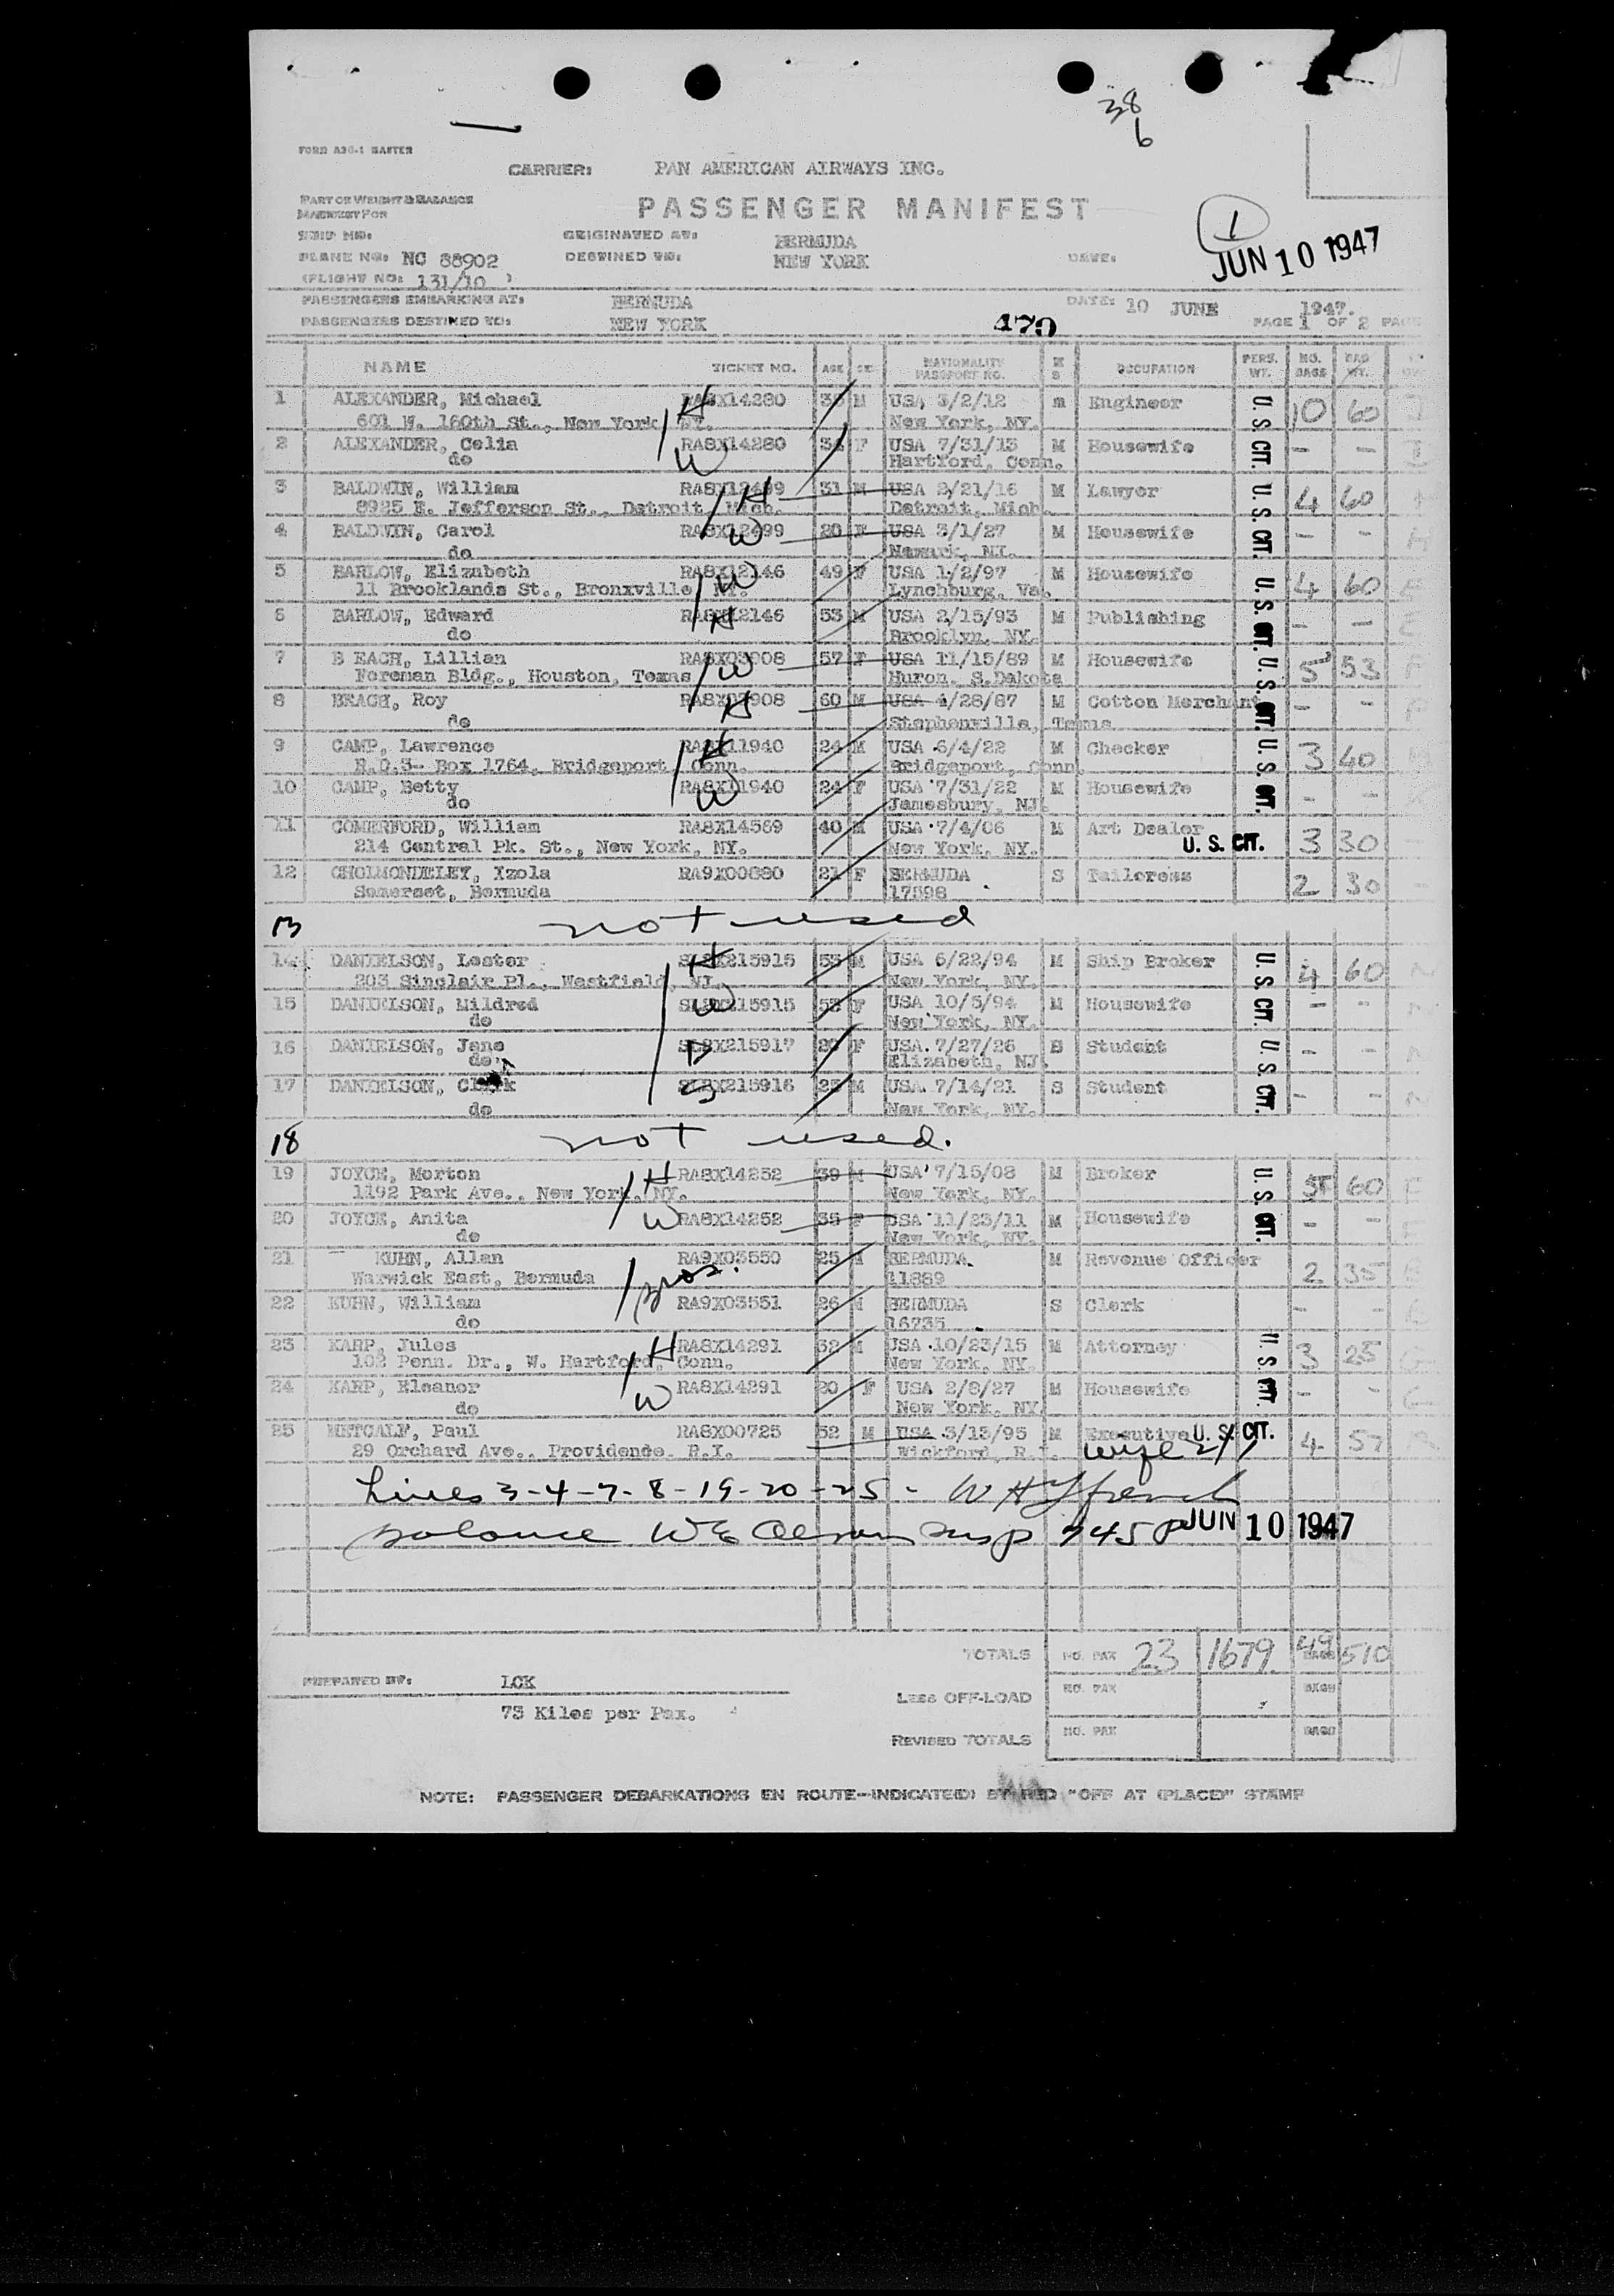 38
6
FORM A30-1 MASTER
CARRIER: PAN AMERICAN AIRWAYS INC.
PART OF WEIGHT & BALANCE
MANIFEST FOR
PASSENGER MANIFEST
1
TRIP NO: ORIGINATED AT: BERMUDA
PLANE NO: NC 88902 DESTINED TO: NEW YORK DATE: JUN 10 1947
(FLIGHT NO: 131/10 )
PASSENGERS EMBARKING AT: BERMUDA DATE: 10 JUNE 1947.
PASSENGERS DESTINED TO: NEW YORK 470 PAGE 1 OF 2
NAME TICKET NO. AGE SEX NATIONALITY PASSPORT NO. M S OCCUPATION PERS. WT. NO. BAGS BAG WT.
1 ALEXANDER, Michael H RA8X14280 35 M USA 3/2/12 m Engineer U. S. CIT. 10 60
601 W. 160th St., New York, NY. New York, NY.
2 ALEXANDER, Celia W RA8X14280 34 F USA 7/31/13 M Housewife - -
do Hartford, Conn.
3 BALDWIN, William H RA8X12499 31 M USA 2/21/16 M Lawyer U. S. CIT. 4 60
8925 E. Jefferson St., Detroit, Mich. Detroit, Mich.
4 BALDWIN, Carol W RA8X12499 20 F USA 3/1/27 M Housewife - -
do Newark, NJ.
5 BARLOW, Elizabeth W RA8X12146 49 F USA 1/2/97 M Housewife U. S. CIT. 4 60
11 Brooklands St., Bronxville, NY. Lynchburg, Va.
6 BARLOW, Edward H RA8X12146 53 M USA 2/15/93 M Publishing - -
do Brooklyn, NY.
7 B EACH, Lillian W 57 F USA 11/15/89 M Housewife U. S. CIT. 5 53
Foreman Bldg., Houston, Texas Huron, S.Dakota
8 BEACH, Roy H 60 M USA 4/28/87 M Cotton Merchant - -
do Stephenville, Texas
9 CAMP, Lawrence H RA8X11940 24 M USA 6/4/22 M Checker U. S. CIT. 3 40
R.D.3- Box 1764, Bridgeport, Conn. Bridgeport, Conn.
10 CAMP, Betty W RA8X11940 24 F USA 7/31/22 M Housewife - -
do Jamesbury, NJ.
11 COMERFORD, William RA8X14569 40 M USA 7/4/06 M Art Dealer U. S. CIT. 3 30
214 Central Pk. St., New York, NY. New York, NY.
12 CHOLMONDELEY, Izola RA9X00880 21 F BERMUDA S Tailoress 2 30
Somerset, Bermuda 17598
13 not used
14 DANIELSON, Lester H 53 M USA 6/22/94 M Ship Broker U. S. CIT. 4 60
203 Sinclair Pl., Westfield, NJ. New York, NY.
15 DANIELSON, Mildred W F USA 10/5/94 M Housewife - -
do New York, NY.
16 DANIELSON, Jane D F USA 7/27/26 S Student U. S. CIT. - -
do Elizabeth, NJ.
17 DANIELSON, Clark S 25 M USA 7/14/21 S Student - -
do New York, NY.
18 not used.
19 JOYCE, Morton H RA8X14252 39 M USA 7/15/08 M Broker U. S. CIT. 5 60
1192 Park Ave., New York, NY. New York, NY.
20 JOYCE, Anita W RA8X14252 35 F USA 11/23/11 M Housewife - -
do New York, NY.
21 KUHN, Allan RA9X03550 25 M BERMUDA M Revenue Officer 2 35
Warwick East, Bermuda bros. 11889
22 KUHN, William RA9X03551 26 M BERMUDA S Clerk - -
do 16735
23 KARP, Jules H RA8X14291 32 M USA 10/23/15 M Attorney U. S. CIT. 3 25
102 Penn. Dr., W. Hartford, Conn. New York, NY.
24 KARP, Eleanor W RA8X14291 20 F USA 2/8/27 M Housewife - -
do New York, NY.
25 METCALF, Paul RA8X00725 52 M USA 3/13/95 M Executive U. S. CIT. 4 57
29 Orchard Ave., Providence, R.I. Wickford, R.I. wife 2/1
Lines 3-4-7-8-19-20-25 - W H French
balance W E Insp 745 P JUN 10 1947
TOTALS NO. PAX 23 1679 49 BAGS 510
PREPARED BY: LCK
LESS OFF-LOAD NO. PAX BAGS
73 Kilos per Pax.
REVISED TOTALS NO. PAX BAGS
NOTE: PASSENGER DEBARKATIONS EN ROUTE—INDICATED BY RED "OFF AT (PLACE)" STAMP